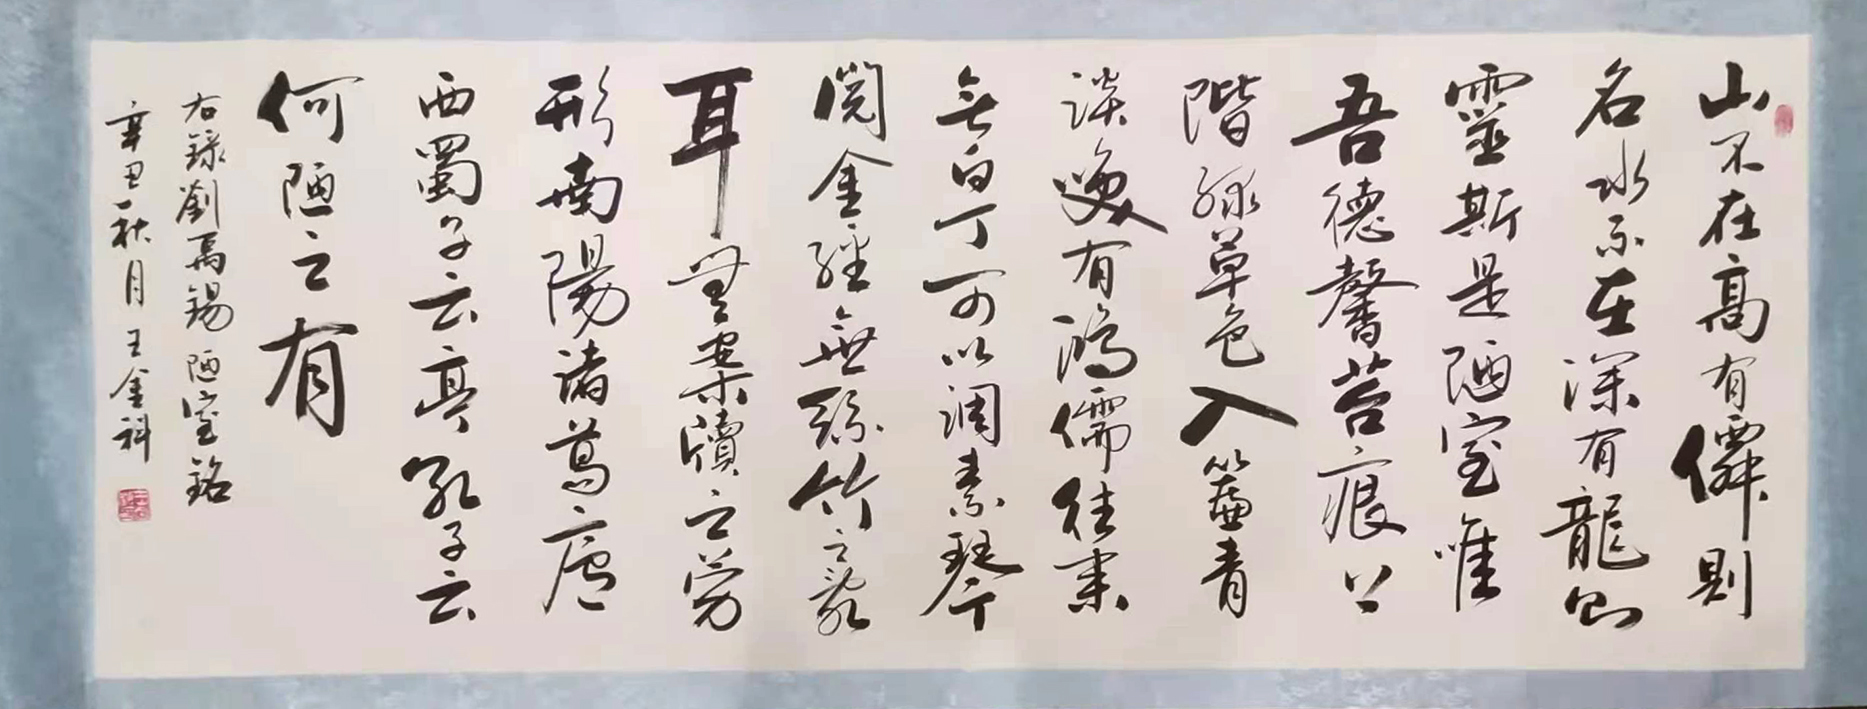 山不在高有僊則
名水不在深有龍則
靈斯是陋室唯
吾德馨苔痕上
階綠草色入簾青
談笑有鴻儒往来
無白丁可以調素琴
閱金經無絲竹之亂
耳無案牘之勞
形南陽諸葛廬
西蜀子云亭孔子云
何陋之有
右録劉禹錫陋室銘
辛丑秋月王金科